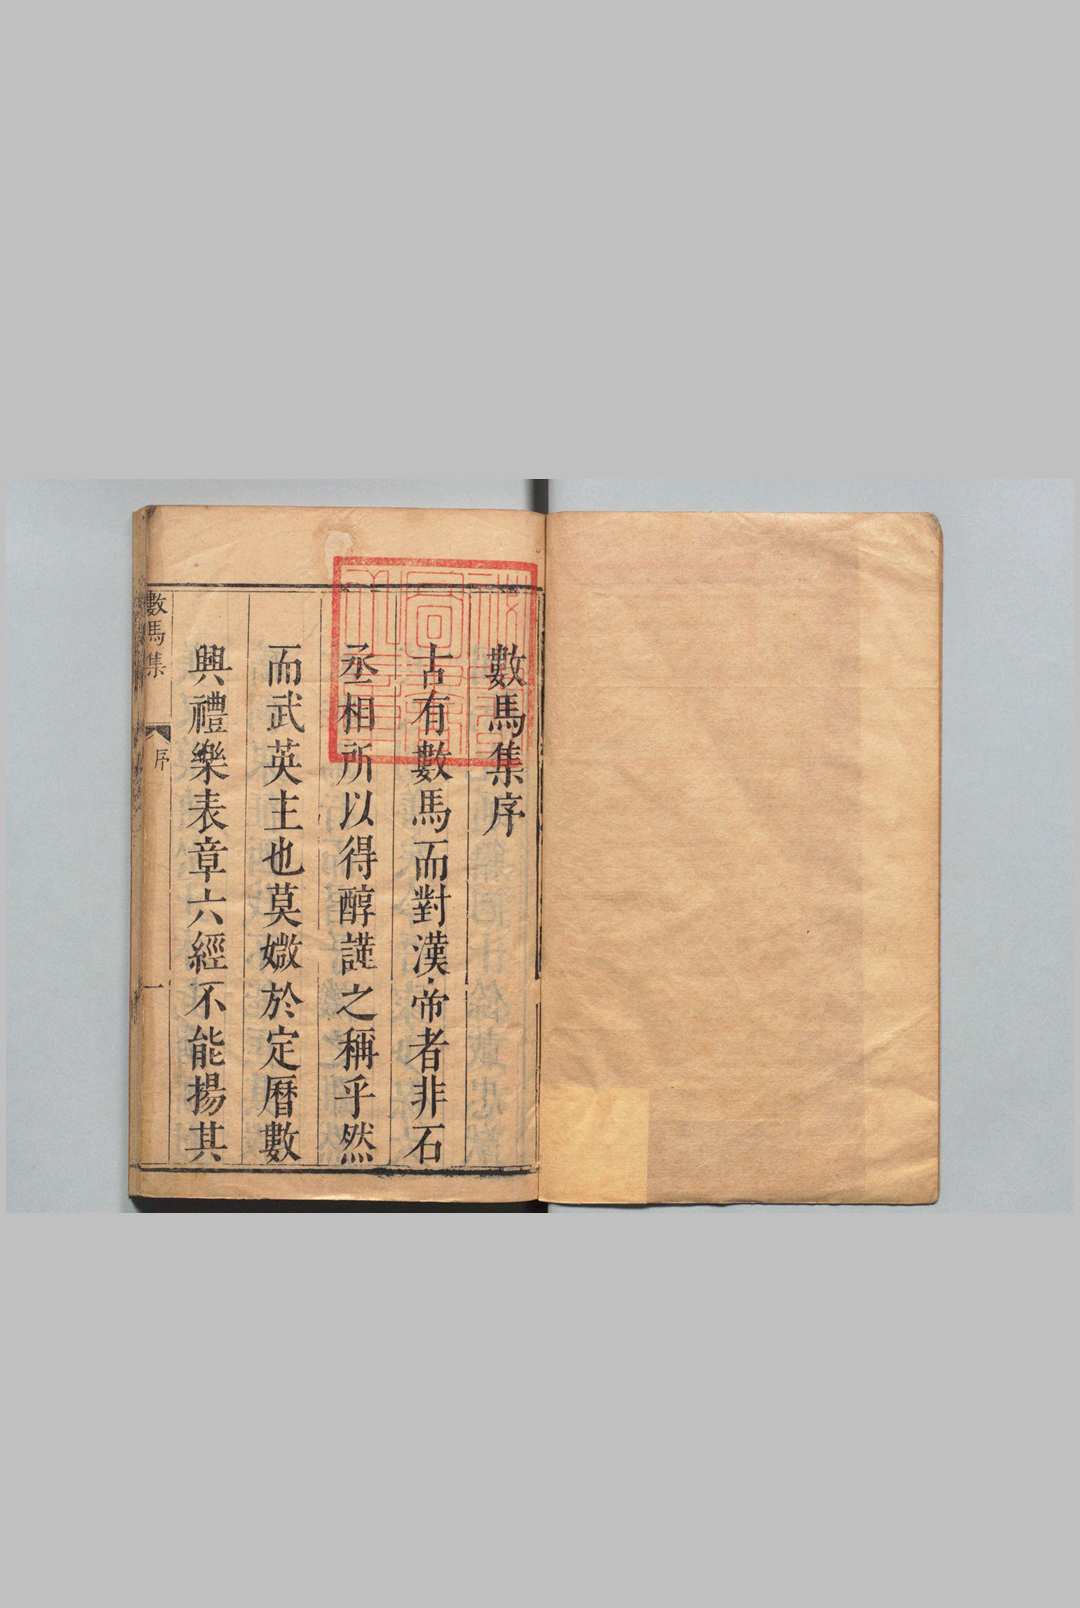 數馬集序
古有數馬而對漢帝者非石
丞相所以得醇謹之稱乎然
而武英主也莫媺於定曆數
興禮樂表章六經不能揚其
數馬集
序
一